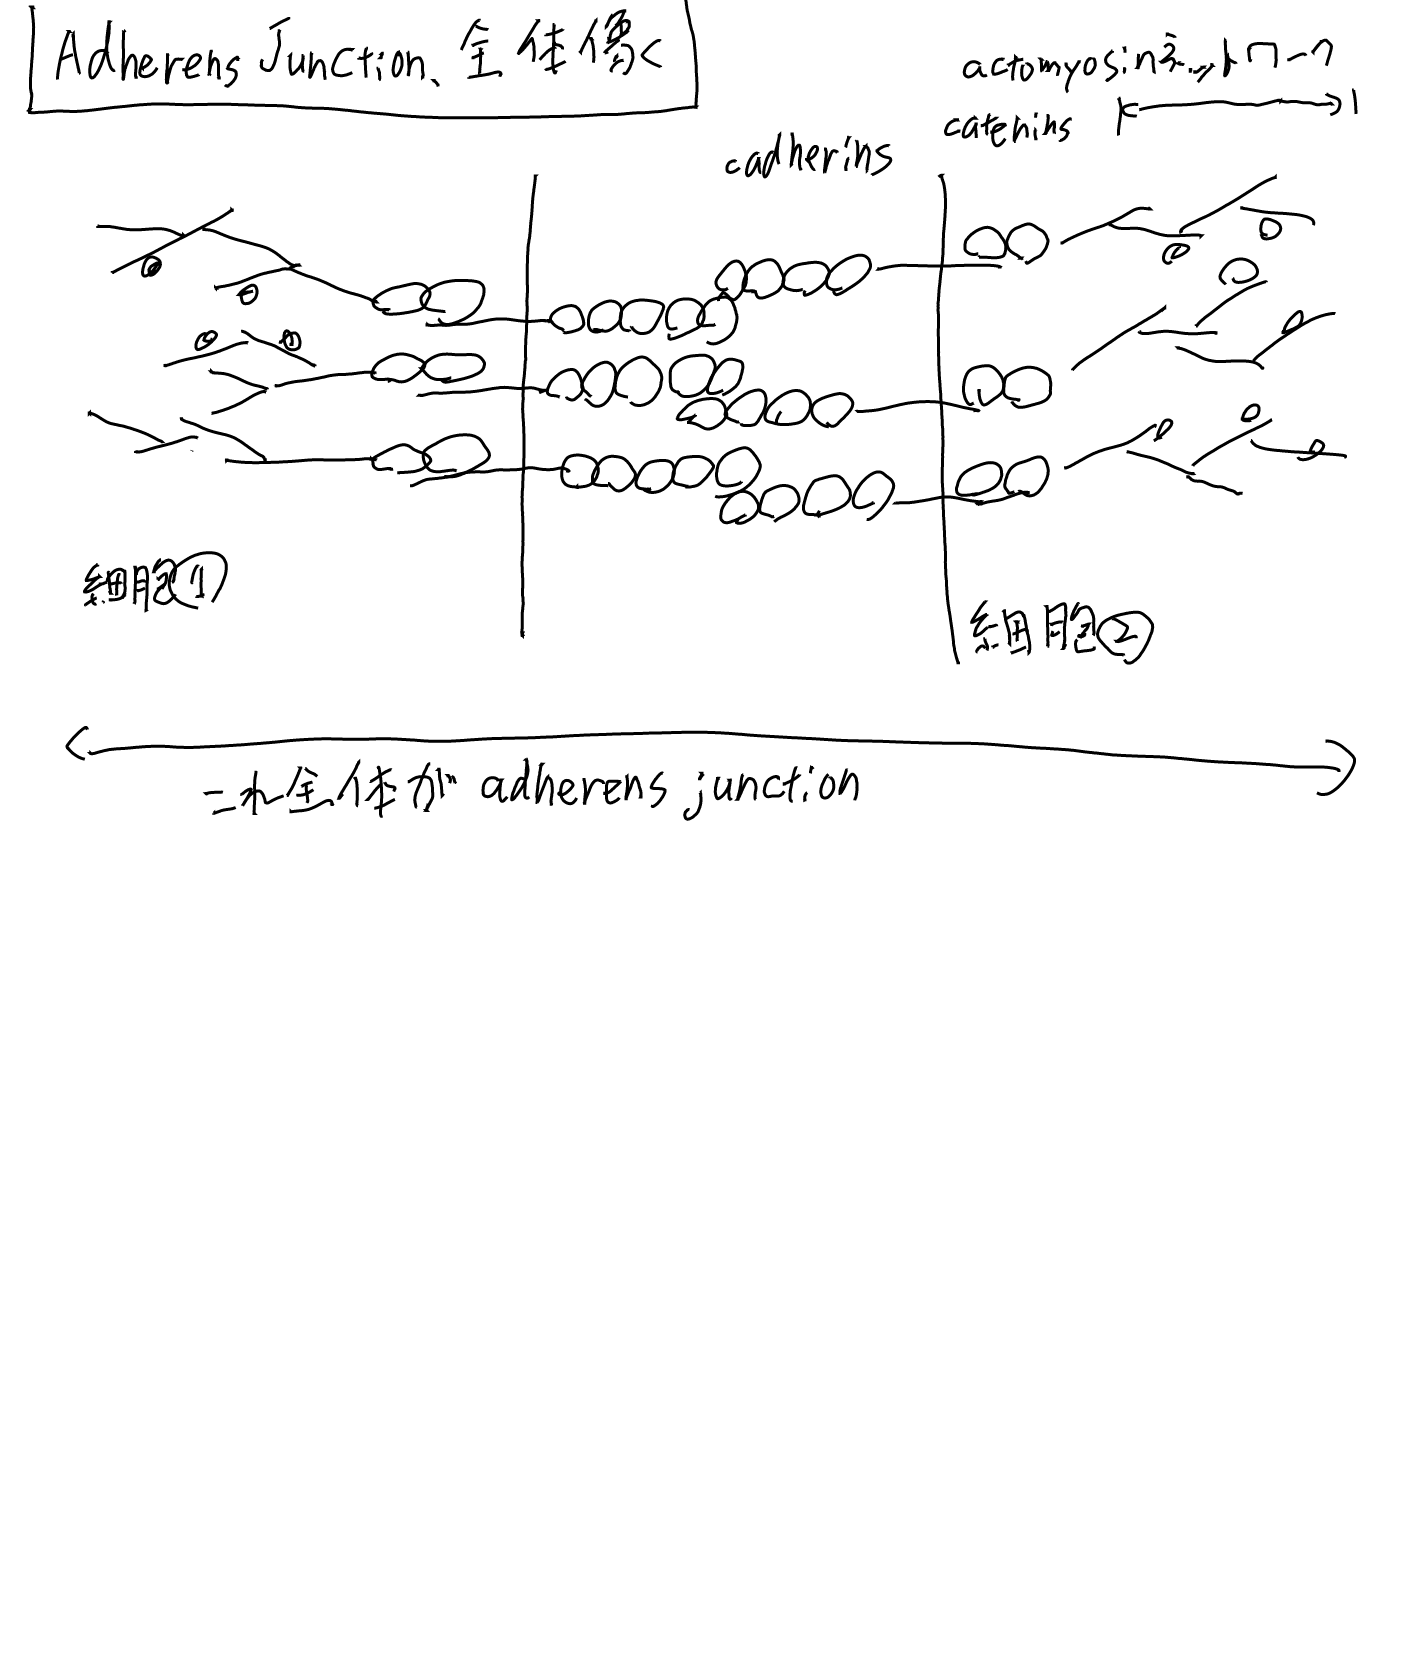 Adherens Junction、全体像く
actomyosinネットワーク
catenins
cadherins
細胞①
細胞②
これ全体が adherens junction